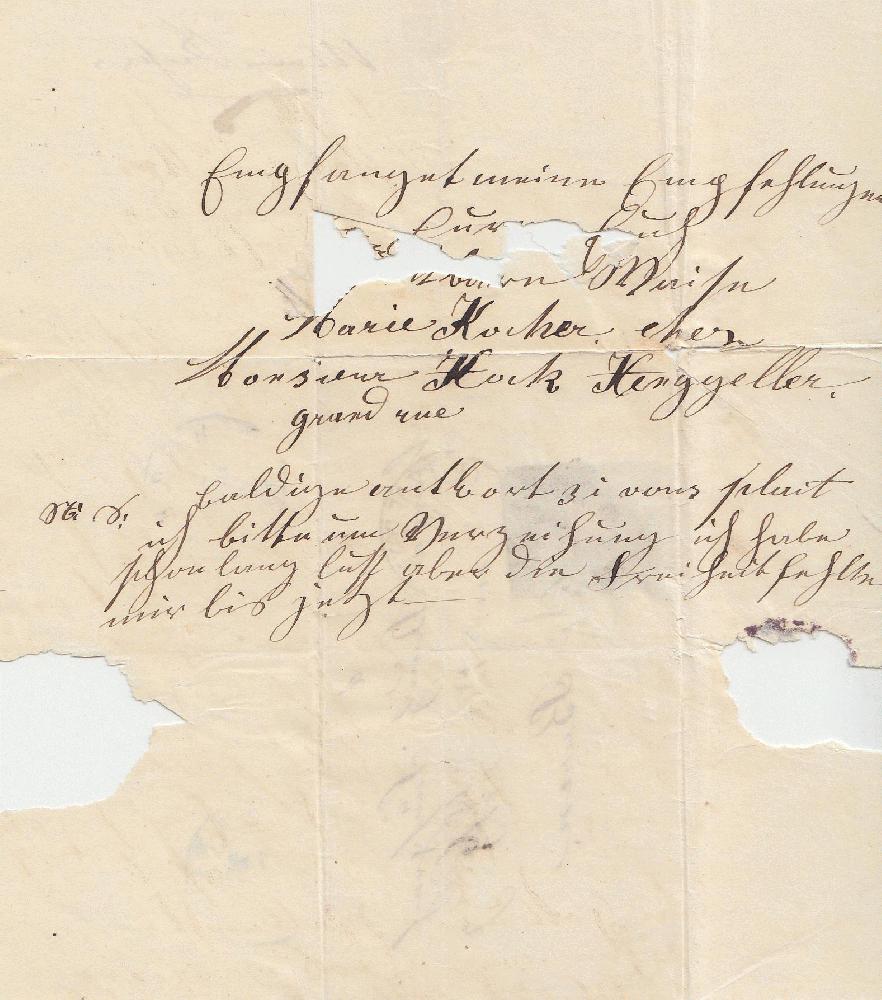 Empfanget meine Empfehlungen
Eur Euch
bare Waise
Marie Kocher. chez
Monsieur Kock Kenggeller.
grand rue
baldige anthwort zi vous plait
ich bitte um Verzeihung ich habe
schon lang lust aber die Freiheit fehlte
mir bis jetzt